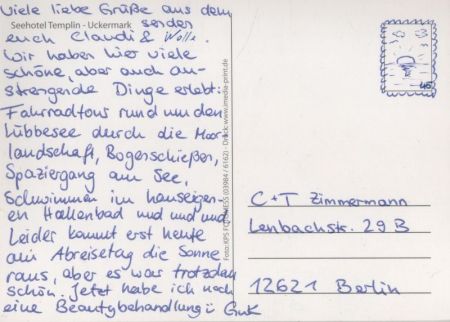 Viele liebe Grüße aus dem
Seehotel Templin - Uckermark senden
euch Claudi & Wolle.
Wir haben hier viele
schöne, aber auch an-
strengende Dinge erlebt:
Fahrradtour rund um den
Lübbesee durch die Moor
landschaft, Bogenschießen,
Spaziergang am See,
Schwimmen im hauseigen-
en Hallenbad und und und
Leider kommt erst heute
am Abreisetag die Sonne
raus, aber es war trotzdem
schön. Jetzt habe ich noch
eine Beautybehandlung :
Foto: KPS (03984 / 6162) - Druck: www.media-print.de
45
C + T Zimmermann
Lenbachstr. 29 B
12621 Berlin